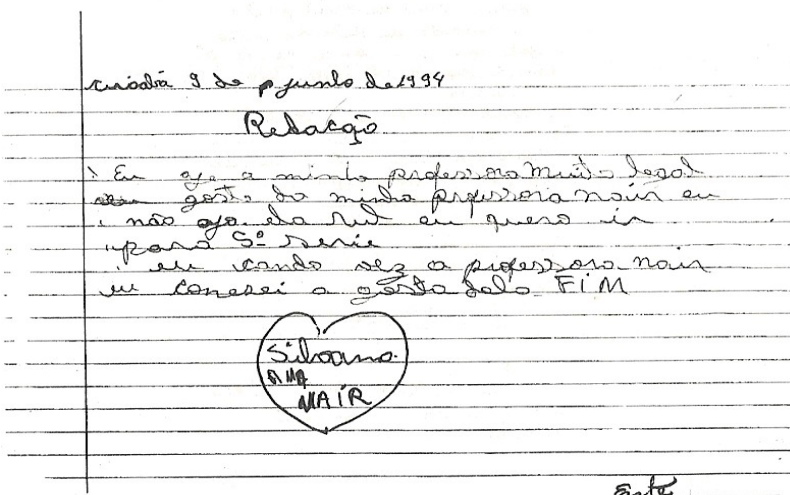 cuiabá 9 de junho de 1994
Redacção
Eu ajo a minha professora Muito legal
gosto da minha professora nair eu
não ajo ela rui eu quero ir
para 5ª serie
eu cando vez a professora nair
eu conesei a gosta dela FIM
Silvana
AMA
NAIR
Esta